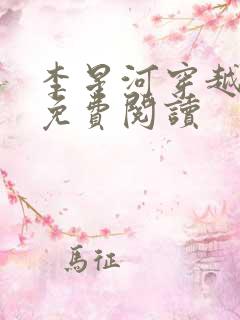 李星河穿越
免費閱讀
馬征